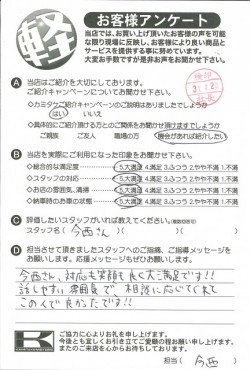 軽
お客様アンケート
当店では、お買い上げ頂いたお客様の声を可能
な限り現場に反映し、お客様により良い商品と
サービスを提供する事に努めています。
大変お手数ですが是非お声をお聞かせ下さい。
A 当店はご紹介を大切にしております。
ご紹介キャンペーンについてお聞かせ下さい。
◇カミタケご紹介キャンペーンのご説明はありましたでしょうか
はい いいえ
◇具体的にご紹介頂ける方とのご関係をお聞かせ頂けますでしょうか
ご親族 ご友人 職場の方 機会があれば紹介したい
B 当店を実際にご利用になった印象をお聞かせ下さい。
◇総合的な満足度 5.大満足 4.満足 3.ふつう 2.やや不満 1.不満
◇スタッフの対応 5.大満足 4.満足 3.ふつう 2.やや不満 1.不満
◇お店の雰囲気、清掃 5.大満足 4.満足 3.ふつう 2.やや不満 1.不満
◇納車時のお車の状態 5.大満足 4.満足 3.ふつう 2.やや不満 1.不満
C 評価したいスタッフがいれば教えてください。(複数回答可)
スタッフ名( 今西さん )( )
D 担当させて頂きましたスタッフへのご指摘、ご指導メッセージを
お願いします。より良いお店創りに向けて、応援メッセージも
お願いします。
今西さん、対応も笑顔も良く大満足です!!
話しやすい雰囲気で、相談に応じてくれて
この人で良かったです!!
ご協力に心よりお礼を申し上げます。
今後とも宜しくお引き立てご愛顧の程お願い申し上げます。
またのご来店を心からお待ちしております。
担当( 今西 )